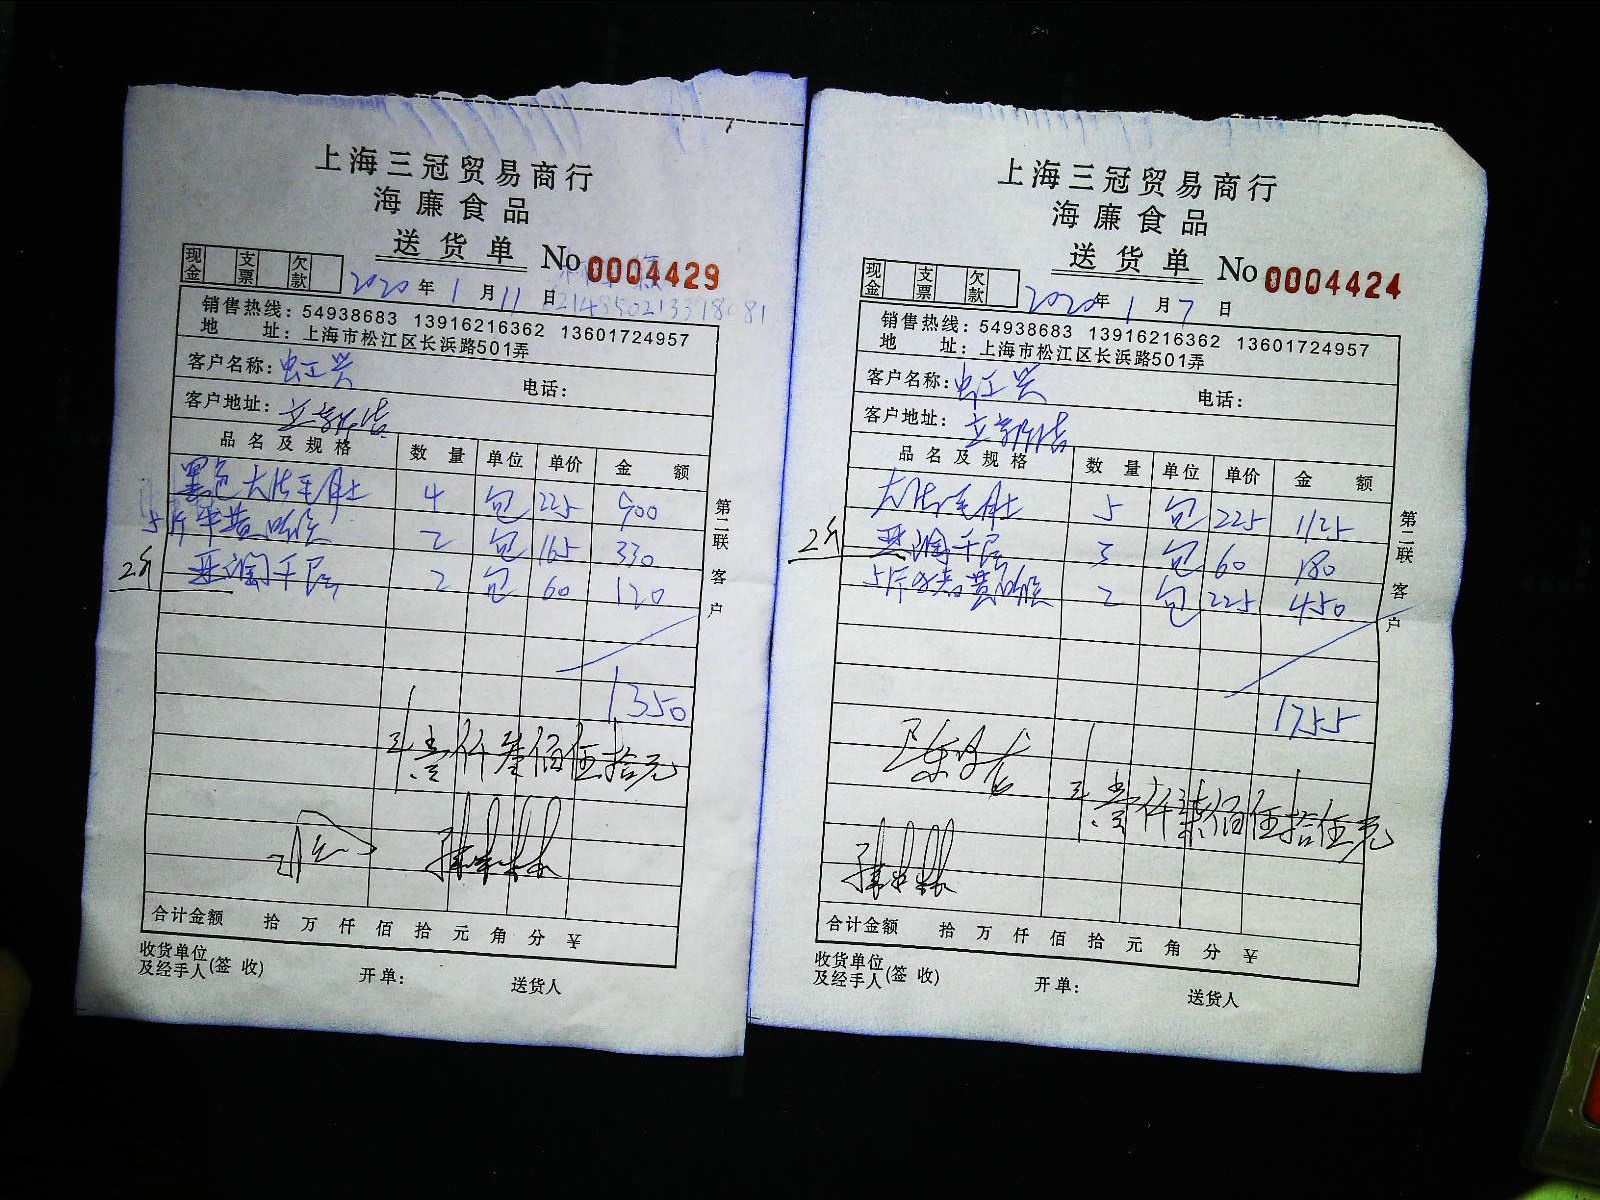 上海三冠贸易商行
海廉食品
送货单 No 0004429
现金 支票 欠款
2020年1月11日
销售热线：54938683 13916216362 13601724957
地 址：上海市松江区长浜路501弄
客户名称：虹正兴 电话：
客户地址：
品名及规格 数量 单位 单价 金额
黑色大 4 包 225 900
5片 2 包 165 330
2斤 千层 2 包 60 120
1350
壹仟叁佰伍拾元
合计金额 拾 万 仟 佰 拾 元 角 分 ¥
收货单位及经手人(签收) 开单： 送货人
第二联 客户
上海三冠贸易商行
海廉食品
送货单 No 0004424
现金 支票 欠款
2020年1月7日
销售热线：54938683 13916216362 13601724957
地 址：上海市松江区长浜路501弄
客户名称：虹正兴 电话：
客户地址：
品名及规格 数量 单位 单价 金额
大 5 包 225 1125
2斤 千层 3 包 60 180
5片 2 包 225 450
1755
壹仟柒佰伍拾伍元
合计金额 拾 万 仟 佰 拾 元 角 分 ¥
收货单位及经手人(签收) 开单： 送货人
第二联 客户